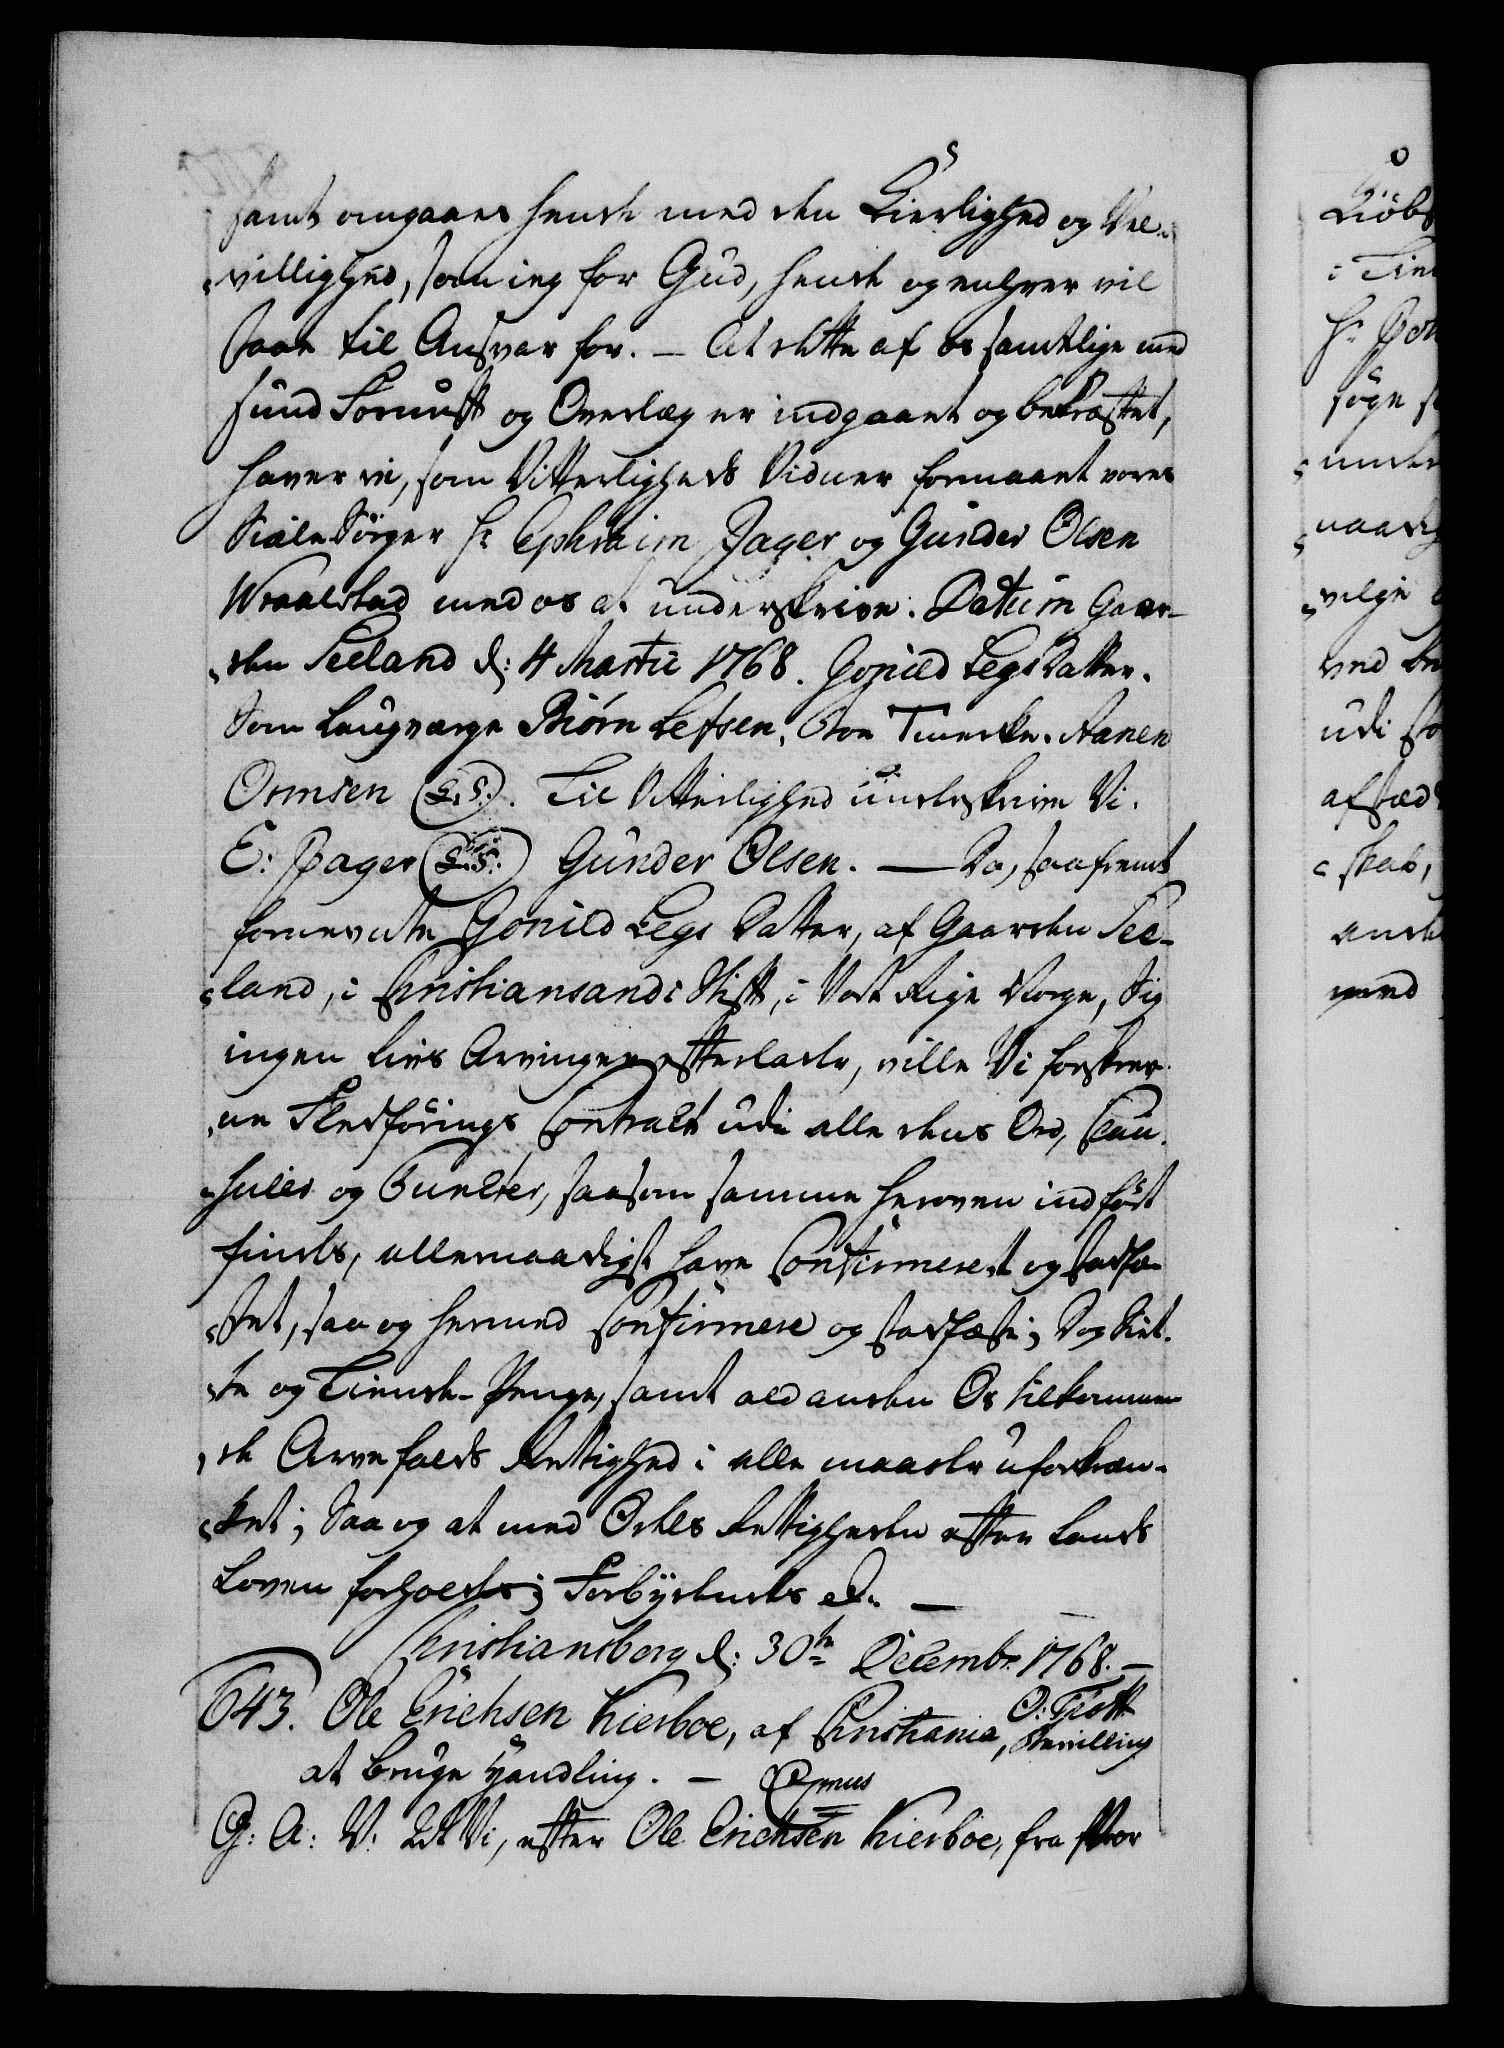 samt omgaaes hende med den Kierlighed og Vel-
villighed, som ieg for Gud, hende og enhver vil
staae til Ansvar for. — At dette af os samtlige med
sund Fornuft og Overlæg er indgaaet og bekræftet,
haver vi, som Vitterligheds Vidner formaaet vores
Siæle Sørger Hr. Ephraim Jager og Gunder Olsen
Wraalstad med os at underskrive. Datum Gaar-
den Seeland d: 4 Martii 1768. Gonild Legs Datter.
Som Laugværge Biørn Lefsen, Aanen
Ormsen (L.S.). Til Vitterlighed underskrive Vi.
E: Jager (L.S.) Gunder Olsen. — Da, saafremt
fornevnte Gonild Legs Datter, af Gaarden See-
land, i Christiansands Stift, i Vort Rige Norge, Sig
ingen Livs Arvinger efterlader, ville Vi forskrev-
ne Fledførings Contract udi alle dens Ord, Clau-
suler og Puncter, saasom samme heroven indført
findes, allernaadigst have Confirmeret og stadfæ-
stet, saa og hermed Confirmere og stadfæste; Dog Siet-
te og Tiende-Penge, samt ald anden Os tilkommen-
de Arvefalds Rettighed i alle maader uforkræn-
ket; Saa og at med Odels Rettigheden efter Lands
Loven forholdes; Forbydendes &c. —
Christiansborg d: 30te Decembr. 1768. —
643. Ole Erichsen Kierboe, af Christania, Bevilling
O: Tott
at bruge Handling. —
G: A: V. Vi, efter Ole Erichsen Kierboe, fra Vor
Kiöbs
i Tien
Hr
söge
naadig
udi
afsted
skab,
med